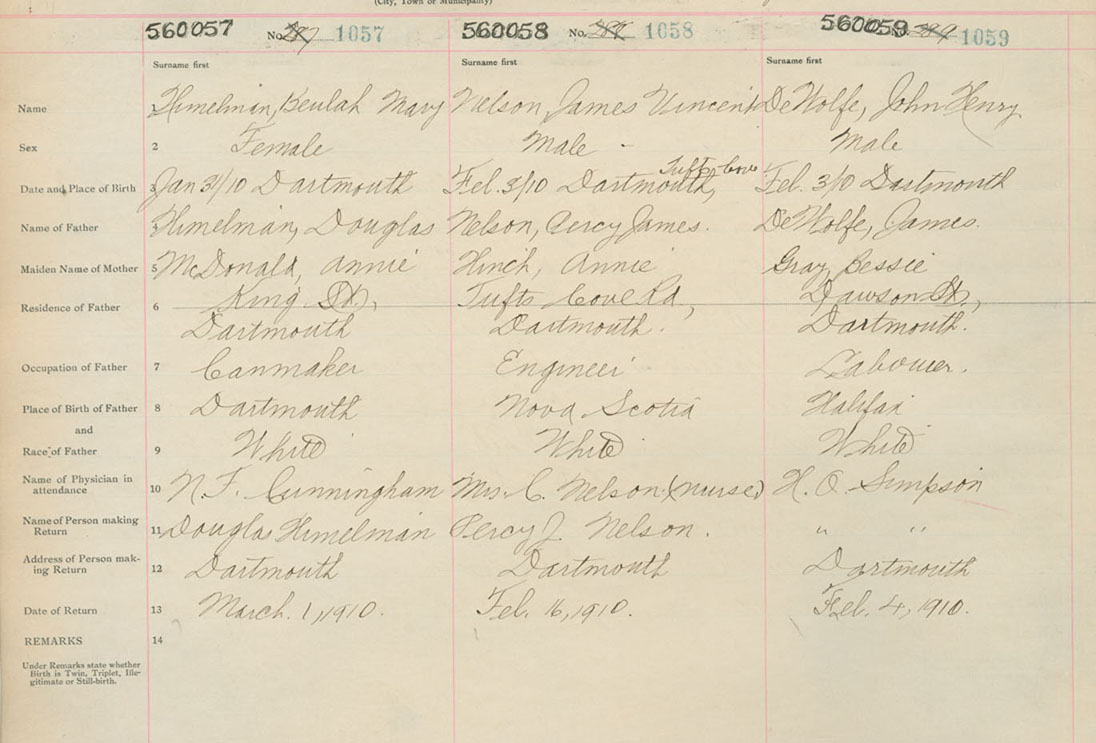 (City, Town or Municipality)
560057 No. 287 1057 560058 No. 288 1058 560059 No. 289 1059
Surname first Surname first Surname first
Name 1 Himelman, Beulah Mary Nelson, James Vincent DeWolfe, John Henry
Sex 2 Female Male - Male
Tufts Cove
Date and Place of Birth 3 Jan 31/10 Dartmouth Feb. 3/10 Dartmouth, Feb. 3/10 Dartmouth
Name of Father 4 Himelman, Douglas Nelson, Percy James. DeWolfe, James.
Maiden Name of Mother 5 McDonald, Annie Hinch, Annie Gray, Bessie
Residence of Father 6 King St, Tufts Cove Rd, Dawson St,
Dartmouth Dartmouth. Dartmouth.
Occupation of Father 7 Canmaker Engineer Labourer.
Place of Birth of Father 8 Dartmouth Nova Scotia Halifax
and
Race of Father 9 White White White
Name of Physician in
attendance 10 N. F. Cunningham Mrs. C. Nelson (nurse) H. O. Simpson
Name of Person making
Return 11 Douglas Himelman Percy J. Nelson. " "
Address of Person mak-
ing Return 12 Dartmouth Dartmouth Dartmouth
Date of Return 13 March. 1, 1910. Feb. 16, 1910. Feb. 4, 1910.
REMARKS 14
Under Remarks state whether
Birth is Twin, Triplet, Ille-
gitimate or Still-birth.